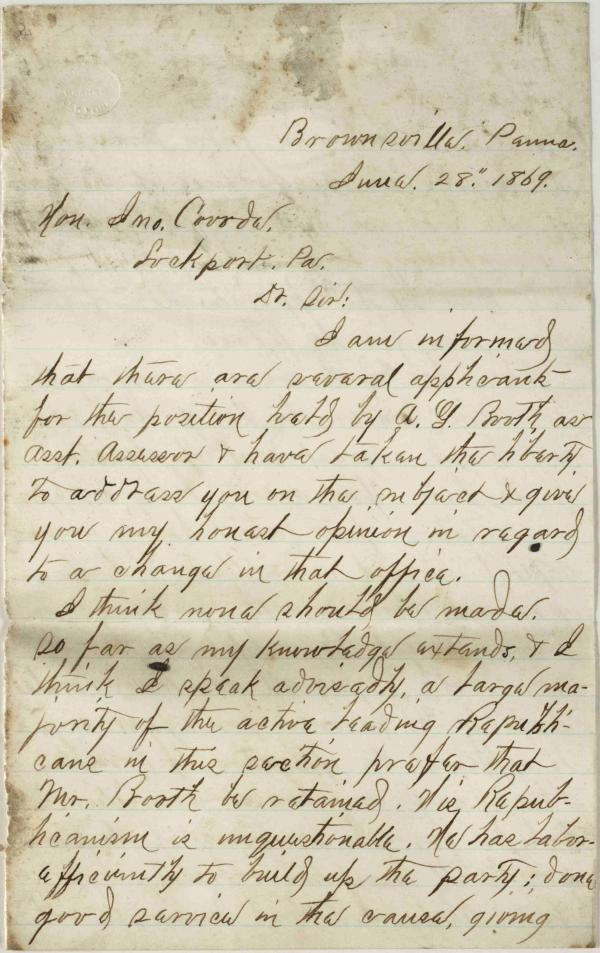 Brownsville, Penna.
June. 28." 1869.
Hon. Jno. Covode,
Lockport. Pa.
Dr. Sir:
I am informed
that there are several applicants
for the position held by A. G. Booth, as
Asst. Assessor & have taken the liberty
to address you on the subject & give
you my honest opinion in regard
to a change in that office.
I think none should be made.
so far as my knowledge extends, & I
think I speak advisedly, a large ma-
jority of the active leading Republi-
cans in this section prefer that
Mr. Booth be retained. His Repub-
licanism is unquestionable. He has labor-
efficiently to build up the party; done
good service in the cause, giving